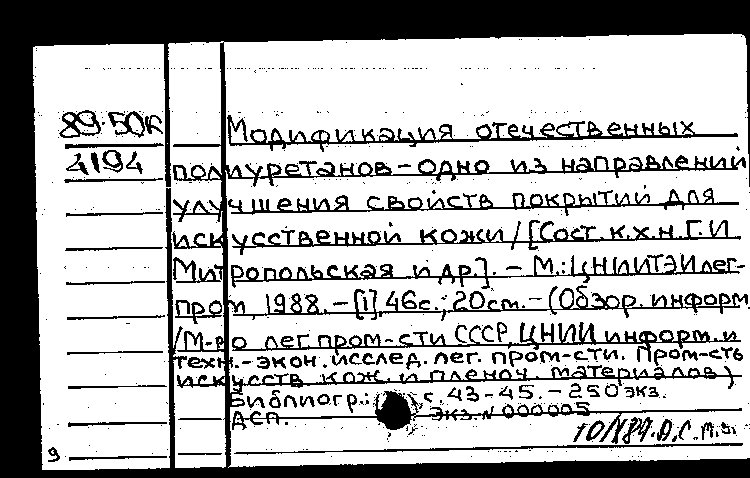 89-50К
4194
Модификация отечественных
полиуретанов - одно из направлений
улучшения свойств покрытий для
искусственной кожи / [Сост. к.х.н. Г.И
Митропольская и др.]. - М.: ЦНИИТЭИлег-
пром, 1988. - [1], 46с.; 20см. - (Обзор. информ
/М-во лег. пром-сти СССР, ЦНИИ информ. и
техн.-экон. исслед. лег. пром-сти. Пром-сть
искусств. кож. и пленоч. материалов)
Библиогр.: с. 43-45. - 250 экз.
ДСП. экз. N 000005
9